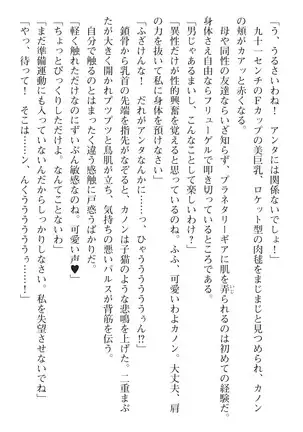 「う、うるさいわね！　アンタには関係ないでしょ！」
九十一センチのＦカップの美巨乳、ロケット型の肉毬をまじまじと見つめられ、カノン
の頬がカアッと赤くなる。
母や同性の友達ならいざ知らず、プラネタリーギアに肌を弄られるのは初めての経験だ。
身体さえ自由ならフリューゲルで叩き切っているところである。
「男じゃあるまいし、こんなことして楽しいわけ？」
「異性だけが性的興奮を覚えると思っているのね。ふふ、可愛いわよカノン。大丈夫、肩
の力を抜いて、私に身体を預けなさい」
「ふざけんな！　だれがアンタなんかに……、ひゃううううぅん!?」
鎖骨から乳首の先端を指先がなぞると、カノンは子猫のような悲鳴を上げた。二重まぶ
たが大きく開かれプツプツと鳥肌が立ち、気持ちの悪いパルスが背筋を伝う。
自分で触るのとはまったく違う感触に戸惑うばかりだ。
「軽く触れただけなのにずいぶん敏感なのね。可愛い声♥」
「ちょっとびっくりしただけよ、なんてことないわ」
「まだ準備運動にも入っていないんだからしっかりしなさい。私を失望させないでね」
「やっ、待って！　そこは……ン、んくうううううぅっ！」